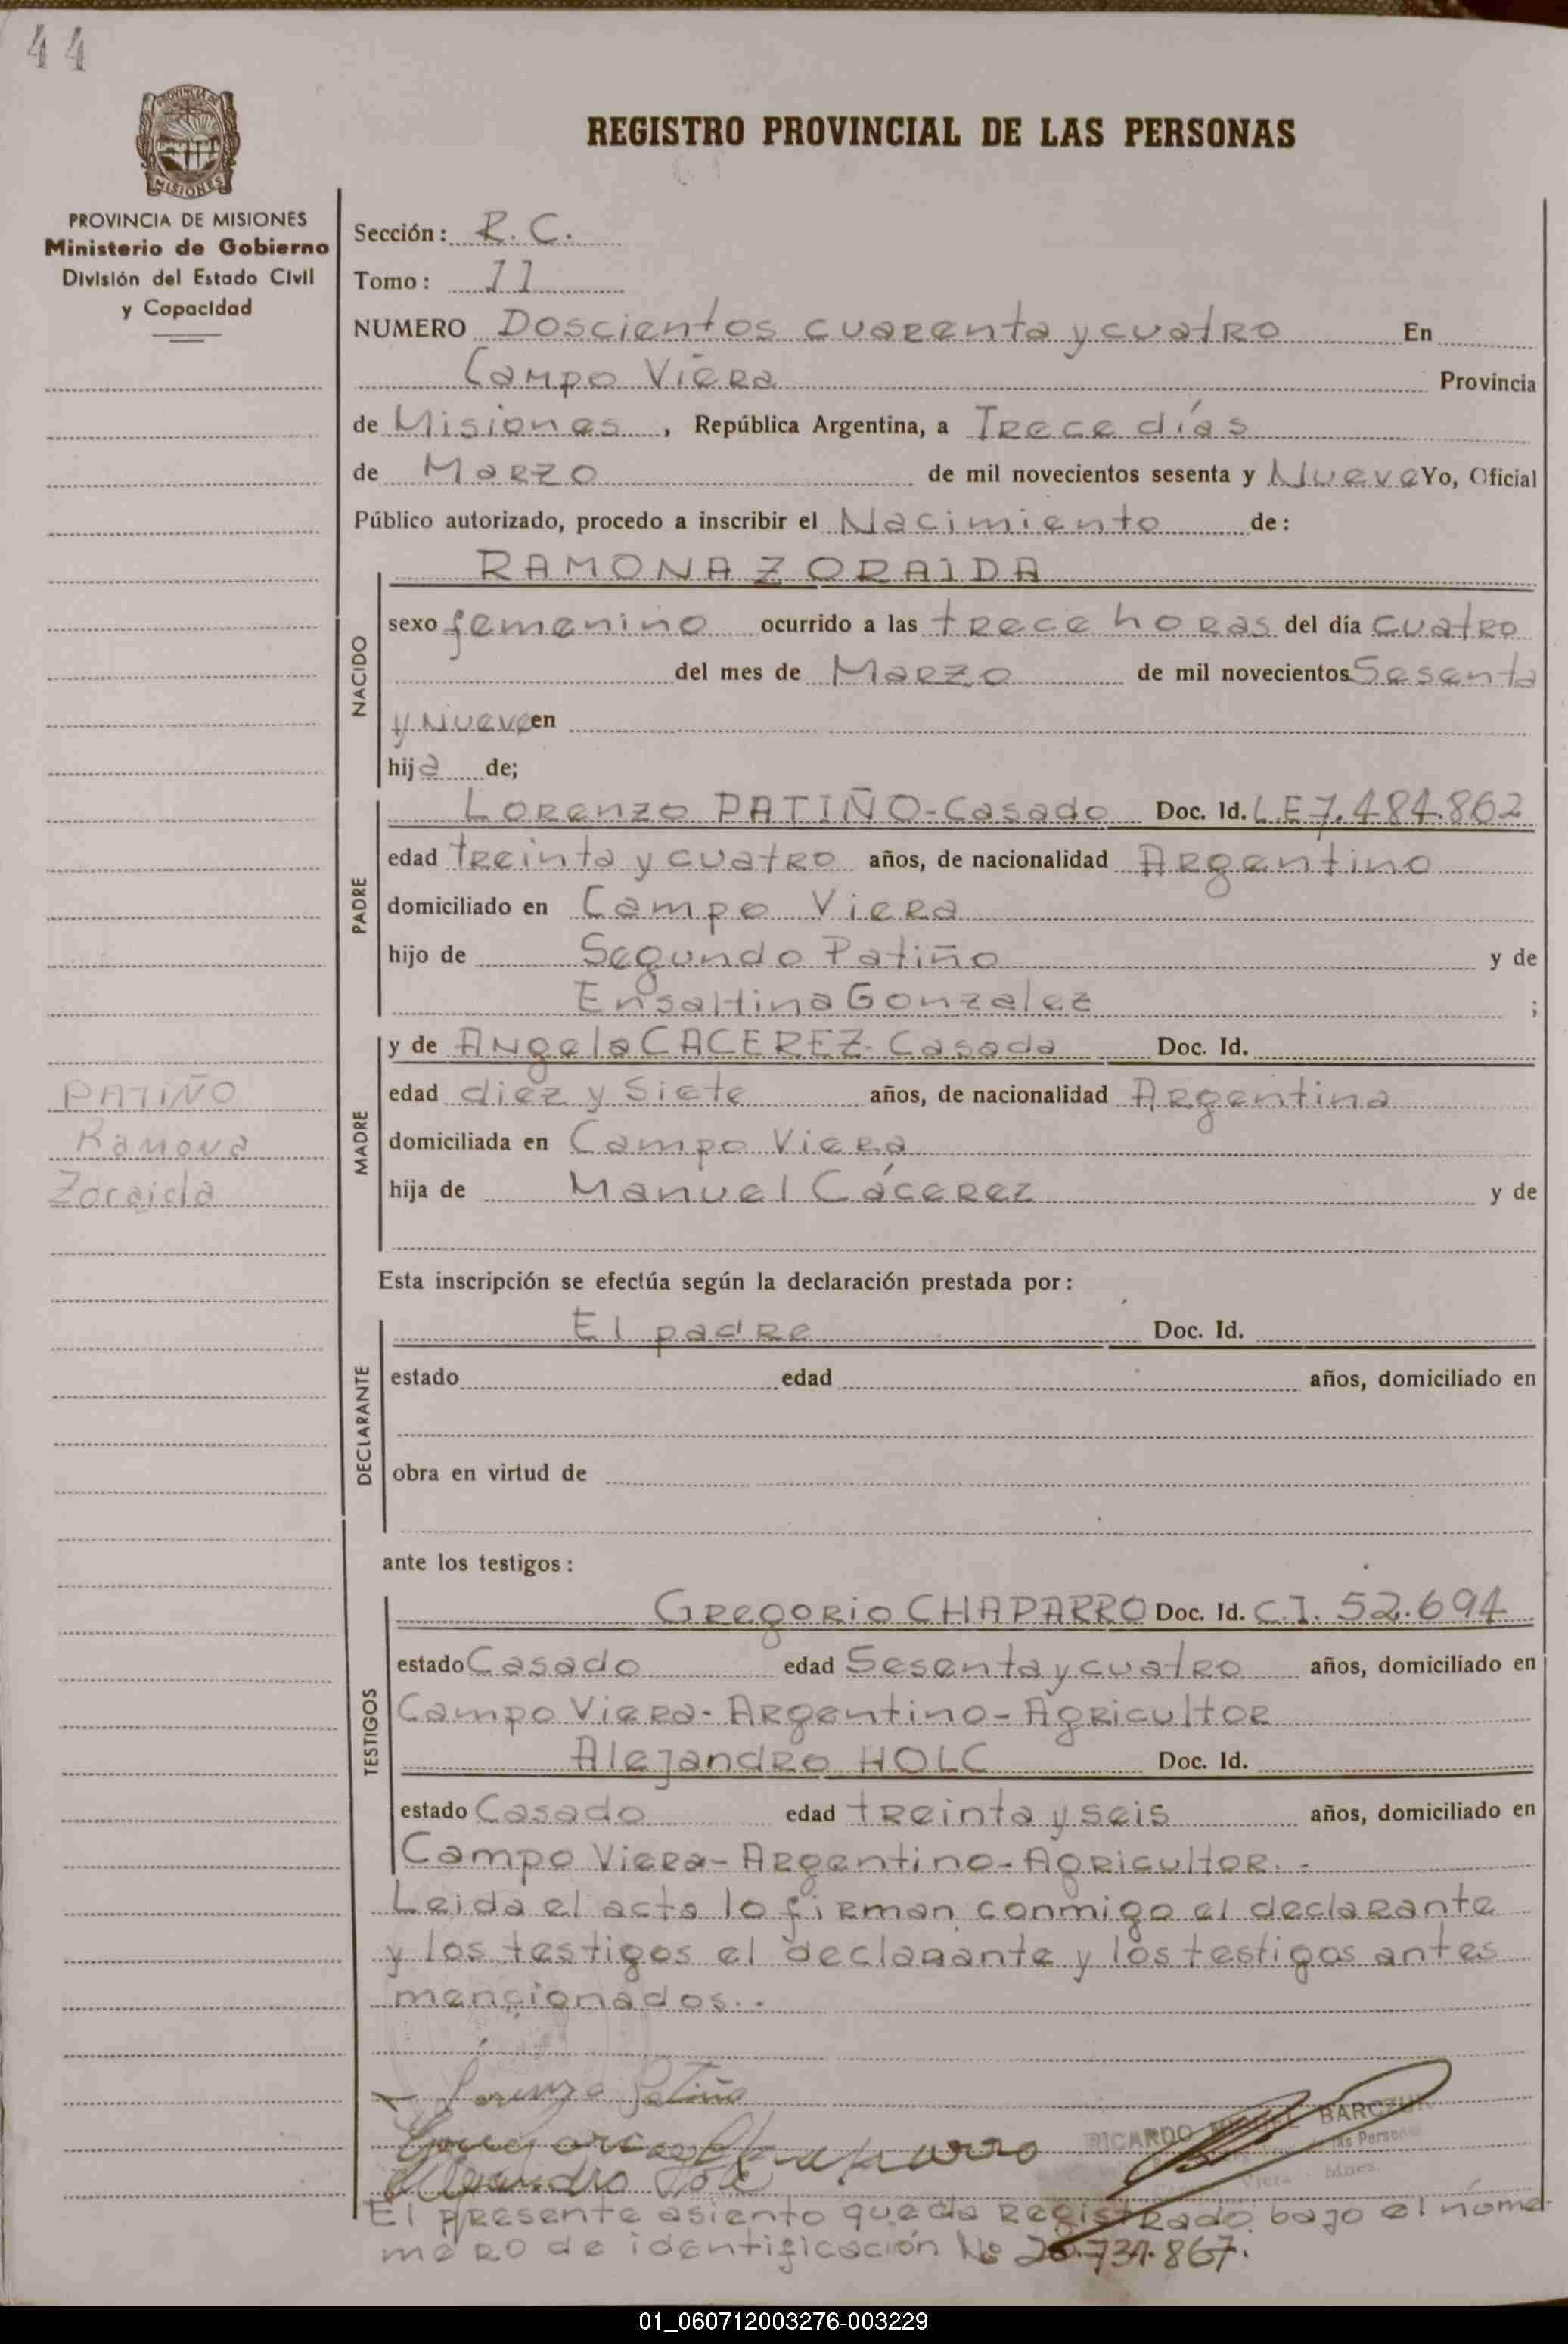 44
PROVINCIA DE
MISIONES
REGISTRO PROVINCIAL DE LAS PERSONAS
PROVINCIA DE MISIONES
Ministerio de Gobierno
División del Estado Civil
y Capacidad
Sección: R. C.
Tomo: II
NUMERO Doscientos cuarenta y cuatro En
Campo Viera Provincia
de Misiones, República Argentina, a Trece días
de Marzo de mil novecientos sesenta y Nueve Yo, Oficial
Público autorizado, procedo a inscribir el Nacimiento de:
RAMONA ZORAIDA
NACIDO
sexo femenino ocurrido a las trece horas del día cuatro
del mes de Marzo de mil novecientos Sesenta
y Nueve en
hija de;
PADRE
Lorenzo PATIÑO-Casado Doc. Id. L.E 7.484.862
edad treinta y cuatro años, de nacionalidad Argentino
domiciliado en Campo Viera
hijo de Segundo Patiño y de
Ensaltina Gonzalez ;
MADRE
y de Angela CACEREZ- Casada Doc. Id.
edad diez y Siete años, de nacionalidad Argentina
domiciliada en Campo Viera
hija de Manuel Cácerez y de
PATIÑO
Ramona
Zoraida
Esta inscripción se efectúa según la declaración prestada por:
DECLARANTE
El padre Doc. Id.
estado edad años, domiciliado en
obra en virtud de
ante los testigos:
TESTIGOS
Gregorio CHAPARRO Doc. Id. C.I. 52.694
estado Casado edad Sesenta y cuatro años, domiciliado en
Campo Viera- Argentino- Agricultor
Alejandro HOLC Doc. Id.
estado Casado edad treinta y seis años, domiciliado en
Campo Viera- Argentino- Agricultor.-
Leida el acta lo firman conmigo el declarante
y los testigos el declarante y los testigos antes
mencionados.-
Lorenzo Patiño
Gregorio Chaparro
Alejandro Holc
RICARDO MIGUEL BARCZUK
las Personas
Viera - Mnes.
El presente asiento queda registrado bajo el núme-
mero de identificación No 20.731.867.
01_060712003276-003229